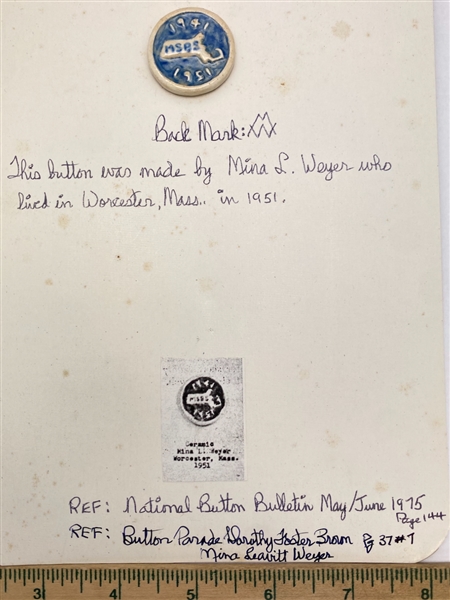 1941
MSBS
1951
Back Mark:
This button was made by Mina L. Weyer who
lived in Worcester, Mass.. in 1951.
1941
MSBS
1951
Ceramic
Mina L. Weyer
Worcester, Mass.
1951
REF: National Button Bulletin May/June 1975
Page 144
REF: Button Parade Dorothy Foster Brown Pg 37 #7
Mina Leavitt Weyer
3 4 5 6 7 8